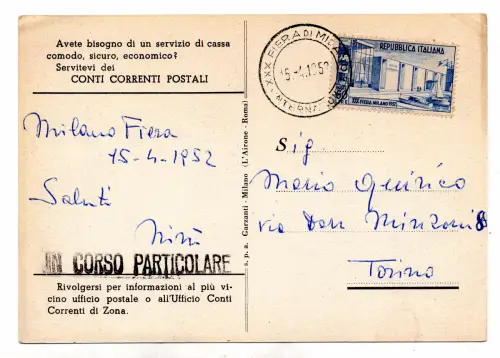 Avete bisogno di un servizio di cassa
comodo, sicuro, economico?
Servitevi dei
CONTI CORRENTI POSTALI
Milano Fiera
15-4-1952
Saluti
Ninì
IN CORSO PARTICOLARE
Rivolgersi per informazioni al più vi-
cino ufficio postale o all'Ufficio Conti
Correnti di Zona.
s. p. a. Garzanti - Milano (L'Airone - Roma)
XXX FIERA DI MILANO
15-4.1952
REPUBBLICA ITALIANA
XXX FIERA MILANO 1952
Sig
Mario Quirico
via Don Minzoni 8
Torino